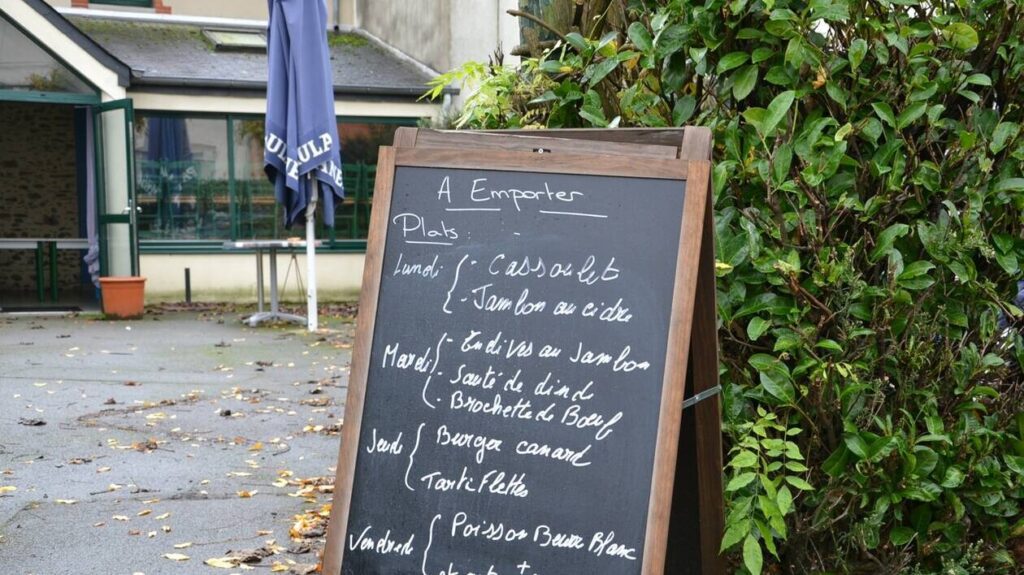 A Emporter
Plats:
Lundi { - Cassoulet
- Jambon au cidre
Mardi { - Endives au Jambon
- Sauté de dind
- Brochette de Boeuf
Jeudi { Burger canard
Tartiflettes
Vendredi { Poisson Beurre Blanc